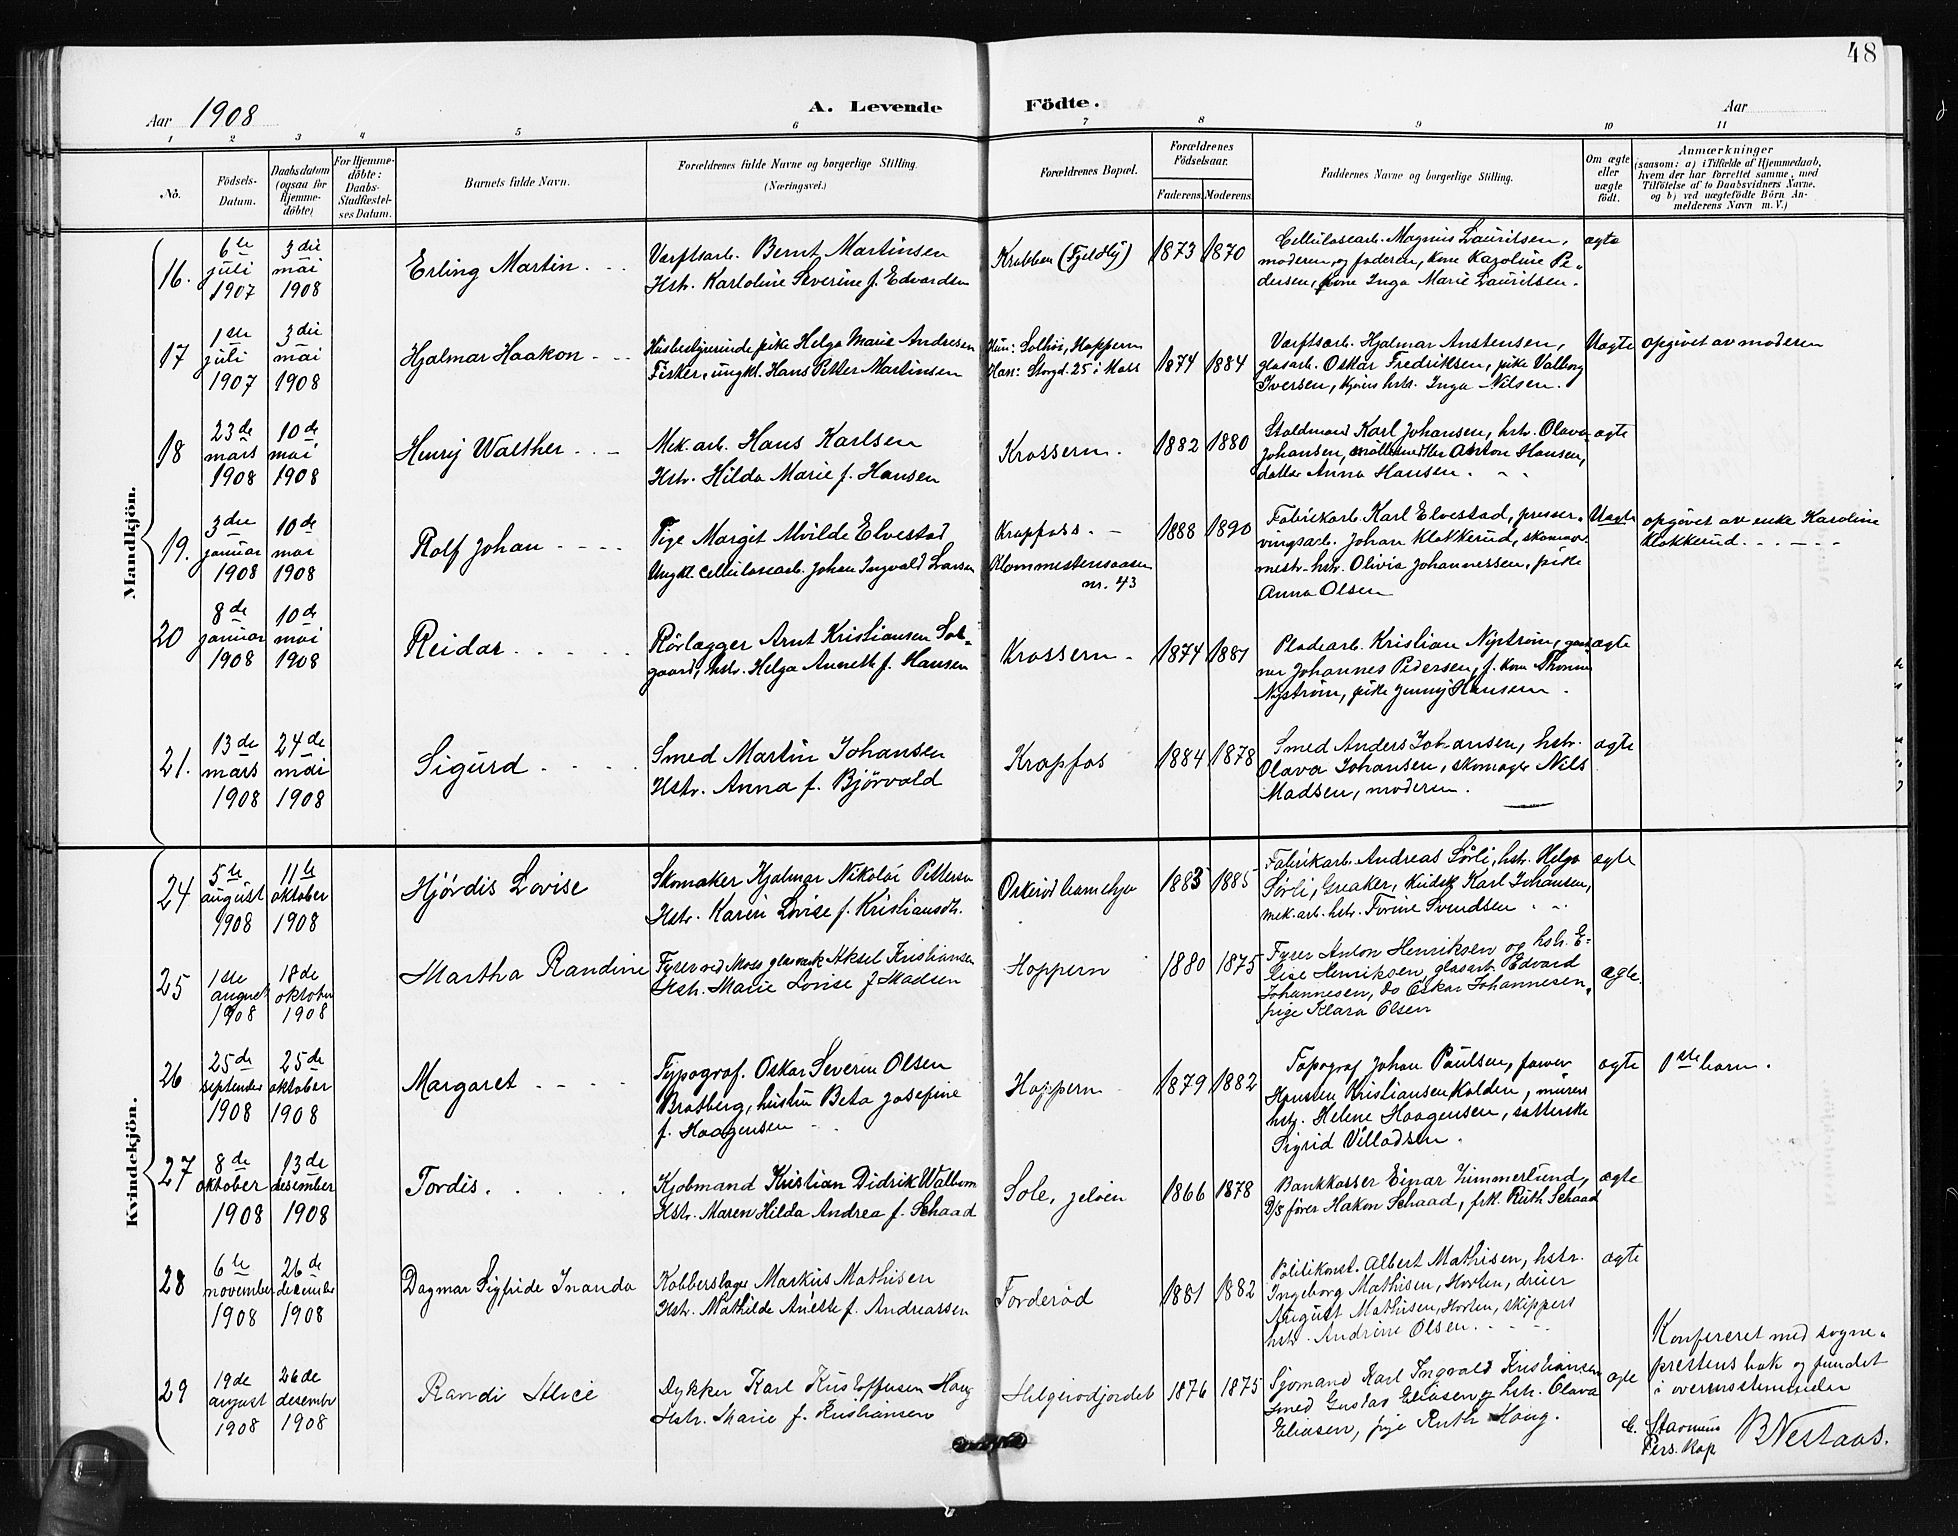 48
Aar 1908
A. Levende Födte.
Aar
1 2 3 4 5 6 7 8 9 10 11
No.
Födsels-
Datum.
Daabsdatum
(ogsaa for
Hjemme-
döbte)
For Hjemme-
döbte:
Daabs-
Stadfæstel-
ses Datum.
Barnets fulde Navn.
Forældrenes fulde Navne og borgerlige Stilling.
(Næringsvei.)
Forældrenes Bopæl.
Forældrenes
Födselsaar.
Faderens Moderens
Faddernes Navne og borgerlige Stilling.
Om ægte
eller
uægte
födt.
Anmærkninger
(saasom: a) i Tilfælde af Hjemmedaab,
hvem der har forrettet samme, med
Tilföielse af to Daabsvidners Navne,
og b) ved uægtefödte Börn An-
melderens Navn m. V.)
Mandkjön.
16.
6te
juli
1907
3die
mai
1908
Erling Martin
Værftsarb. Bernt Martinsen
Hstr. Karoline Severine f. Edvardsen
Krabben (Fjeldly)
1873 1870
Cellulosearb. Magnus Lauritsen,
moderen og faderen, kone Karoline Pe-
dersen, kone Inga Marie Lauritsen.
ægte
17
1ste
juli
1907
3die
mai
1908
Hjalmar Haakon
Husbestyrerinde pike Helga Marie Andresen
Fisker, ungkl. Hans Petter Martinsen
Hun: Solhøi, Hoppern
Han: Storgd. 25 i Moss
1874 1884
Værftsarb. Hjalmar Anstensen,
glasarb. Oskar Fredriksen, pike Valborg
Iversen, hstr. Inga Nilsen.
Uægte
opgivet av moderen
18
23de
mars
1908
10de
mai
1908
Henry Walther
Mek. arb. Hans Karlsen
Hstr. Hilda Marie f. Hansen
Krossern
1882 1880
Staldmand Karl Johansen, hstr. Olava
Johansen, Anton Hansen,
datter Anna Hansen.
ægte
19.
3die
januar
1908
10de
mai
1908
Rolf Johan
Pige Margit Alvilde Elvestad
Ungkl. cellulosearb. Johan Ingvald Larsen
Krapfoss.
Klommestensaasen
nr. 43
1888 1890
Fabrikarb. Karl Elvestad, presser-
vingsarb. Johan Klokkerud, skomager-
mestr. hstr. Olivia Johannessen, pike
Anna Olsen
Uægte
opgivet av enke Karoline
Klokkerud.
20
8de
januar
1908
10de
mai
1908
Reidar
Rörlægger Arnt Kristiansen Sol-
gaard, hstr. Helga Annette f. Hansen
Krossern
1874 1881
Pladearb. Kristian Nyström,
Johannes Pedersen, f. kone Thomine
Nyström, pike Jenny Hansen.
ægte
21.
13de
mars
1908
24de
mai
1908
Sigurd
Smed Martin Johansen
Hstr. Anna f. Bjørvold
Krapfos
1884 1878
Smed Anders Johansen, hstr.
Olava Johansen, skomager Nils
Madsen, moderen.
ægte
Kvindekjön.
24
5te
august
1908
11te
oktober
1908
Hjördis Lovise
Skomaker Hjalmar Nikolai Pettersen
Hstr. Karen Lovise f. Kristiansdtr.
1883 1885
Fabrikarb. Andreas Sörli, hstr. Helga
Sörli, Greaker, Kudsk Karl Johansen,
mek. arb. hstr. Torine Svendsen
ægte
25
1ste
august
1908
18de
oktober
1908
Martha Randine
Fyrer ved Moss glasverk Aksel Kristiansen
Hstr. Marie Lovise f Madsen
Hoppern
1880 1875
Fyrer Anton Henriksen og hstr. E-
lise Henriksen, glasarb. Edvard
Johannesen, do Oskar Johannesen,
pige Klara Olsen
ægte.
26
25de
september
1908
25de
oktober
1908
Margaret
Typograf. Oskar Severin Olsen
Bratberg, hustru Beta Josefine
f. Haagensen
Hoppern
1879 1882
Topograf Johan Paulsen, farver
Kristiansen Kolden, murer
hstr. Helene Haagensen, satterske
Sigrid Villadsen.
ægte
1ste barn.
27
8de
oktober
1908
13de
desember
1908
Tordis.
Kjøbmand Kristian Didrik Walbom
Hstr. Maren Hilda Andrea f. Schaad
Sole, jeløen
1866 1878
Bankkasser Einar Zimmerlund,
D/S fører Hakon Schaad, frk. Ruth Schaad
ægte
28
6te
november
1908
26de
desember
1908
Dagmar Sigfride Inanda
Kobberslager Markus Mathisen
Hstr. Mathilde Anette f. Andreassen
Torderød
1881 1882
Politikonst. Albert Mathisen, hstr.
Ingeborg Mathisen, Horten, dreier
August Mathisen, Horten, skippers
hstr. Andrine Olsen.
ægte
29
19de
august
1908
26de
desember
1908
Randi Alice
Dykker Karl Kristoffersen Haug
Hstr. Marie f. Kristiansen
Helgerødjordet
1876 1875
Sjømand Karl Ingvald Kristiansen
smed Gustav Eliasen og hstr. Olava
Eliasen, pige Ruth Haug.
ægte
Konfereret med sogne-
prestens bok og fundet
i overensstemmelse
Pers. kap
B Nestaas.